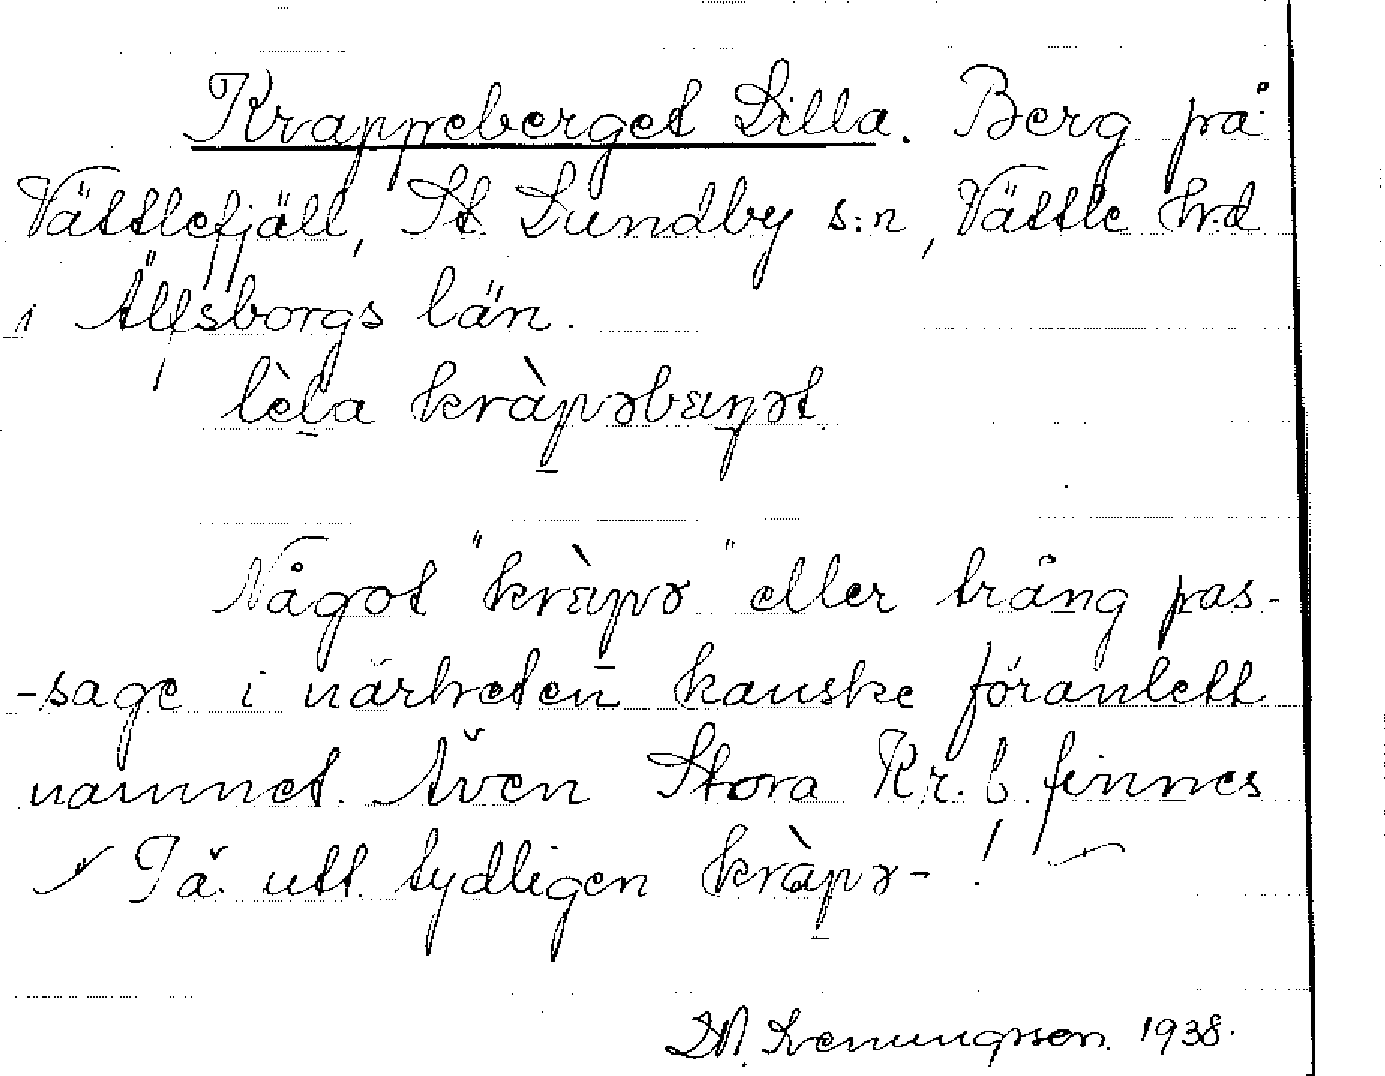 Krappeberget Lilla. Berg på
Vättlefjäll, St. Lundby s:n, Vättle hrd
i Älfsborgs län.
lèla kràpəbærjət.
Något "kràpə" eller trång pas-
-sage i närheten kanske föranlett
namnet. Även Stora Kr. b. finnes
På utt. tydligen kràpə- !
1938.